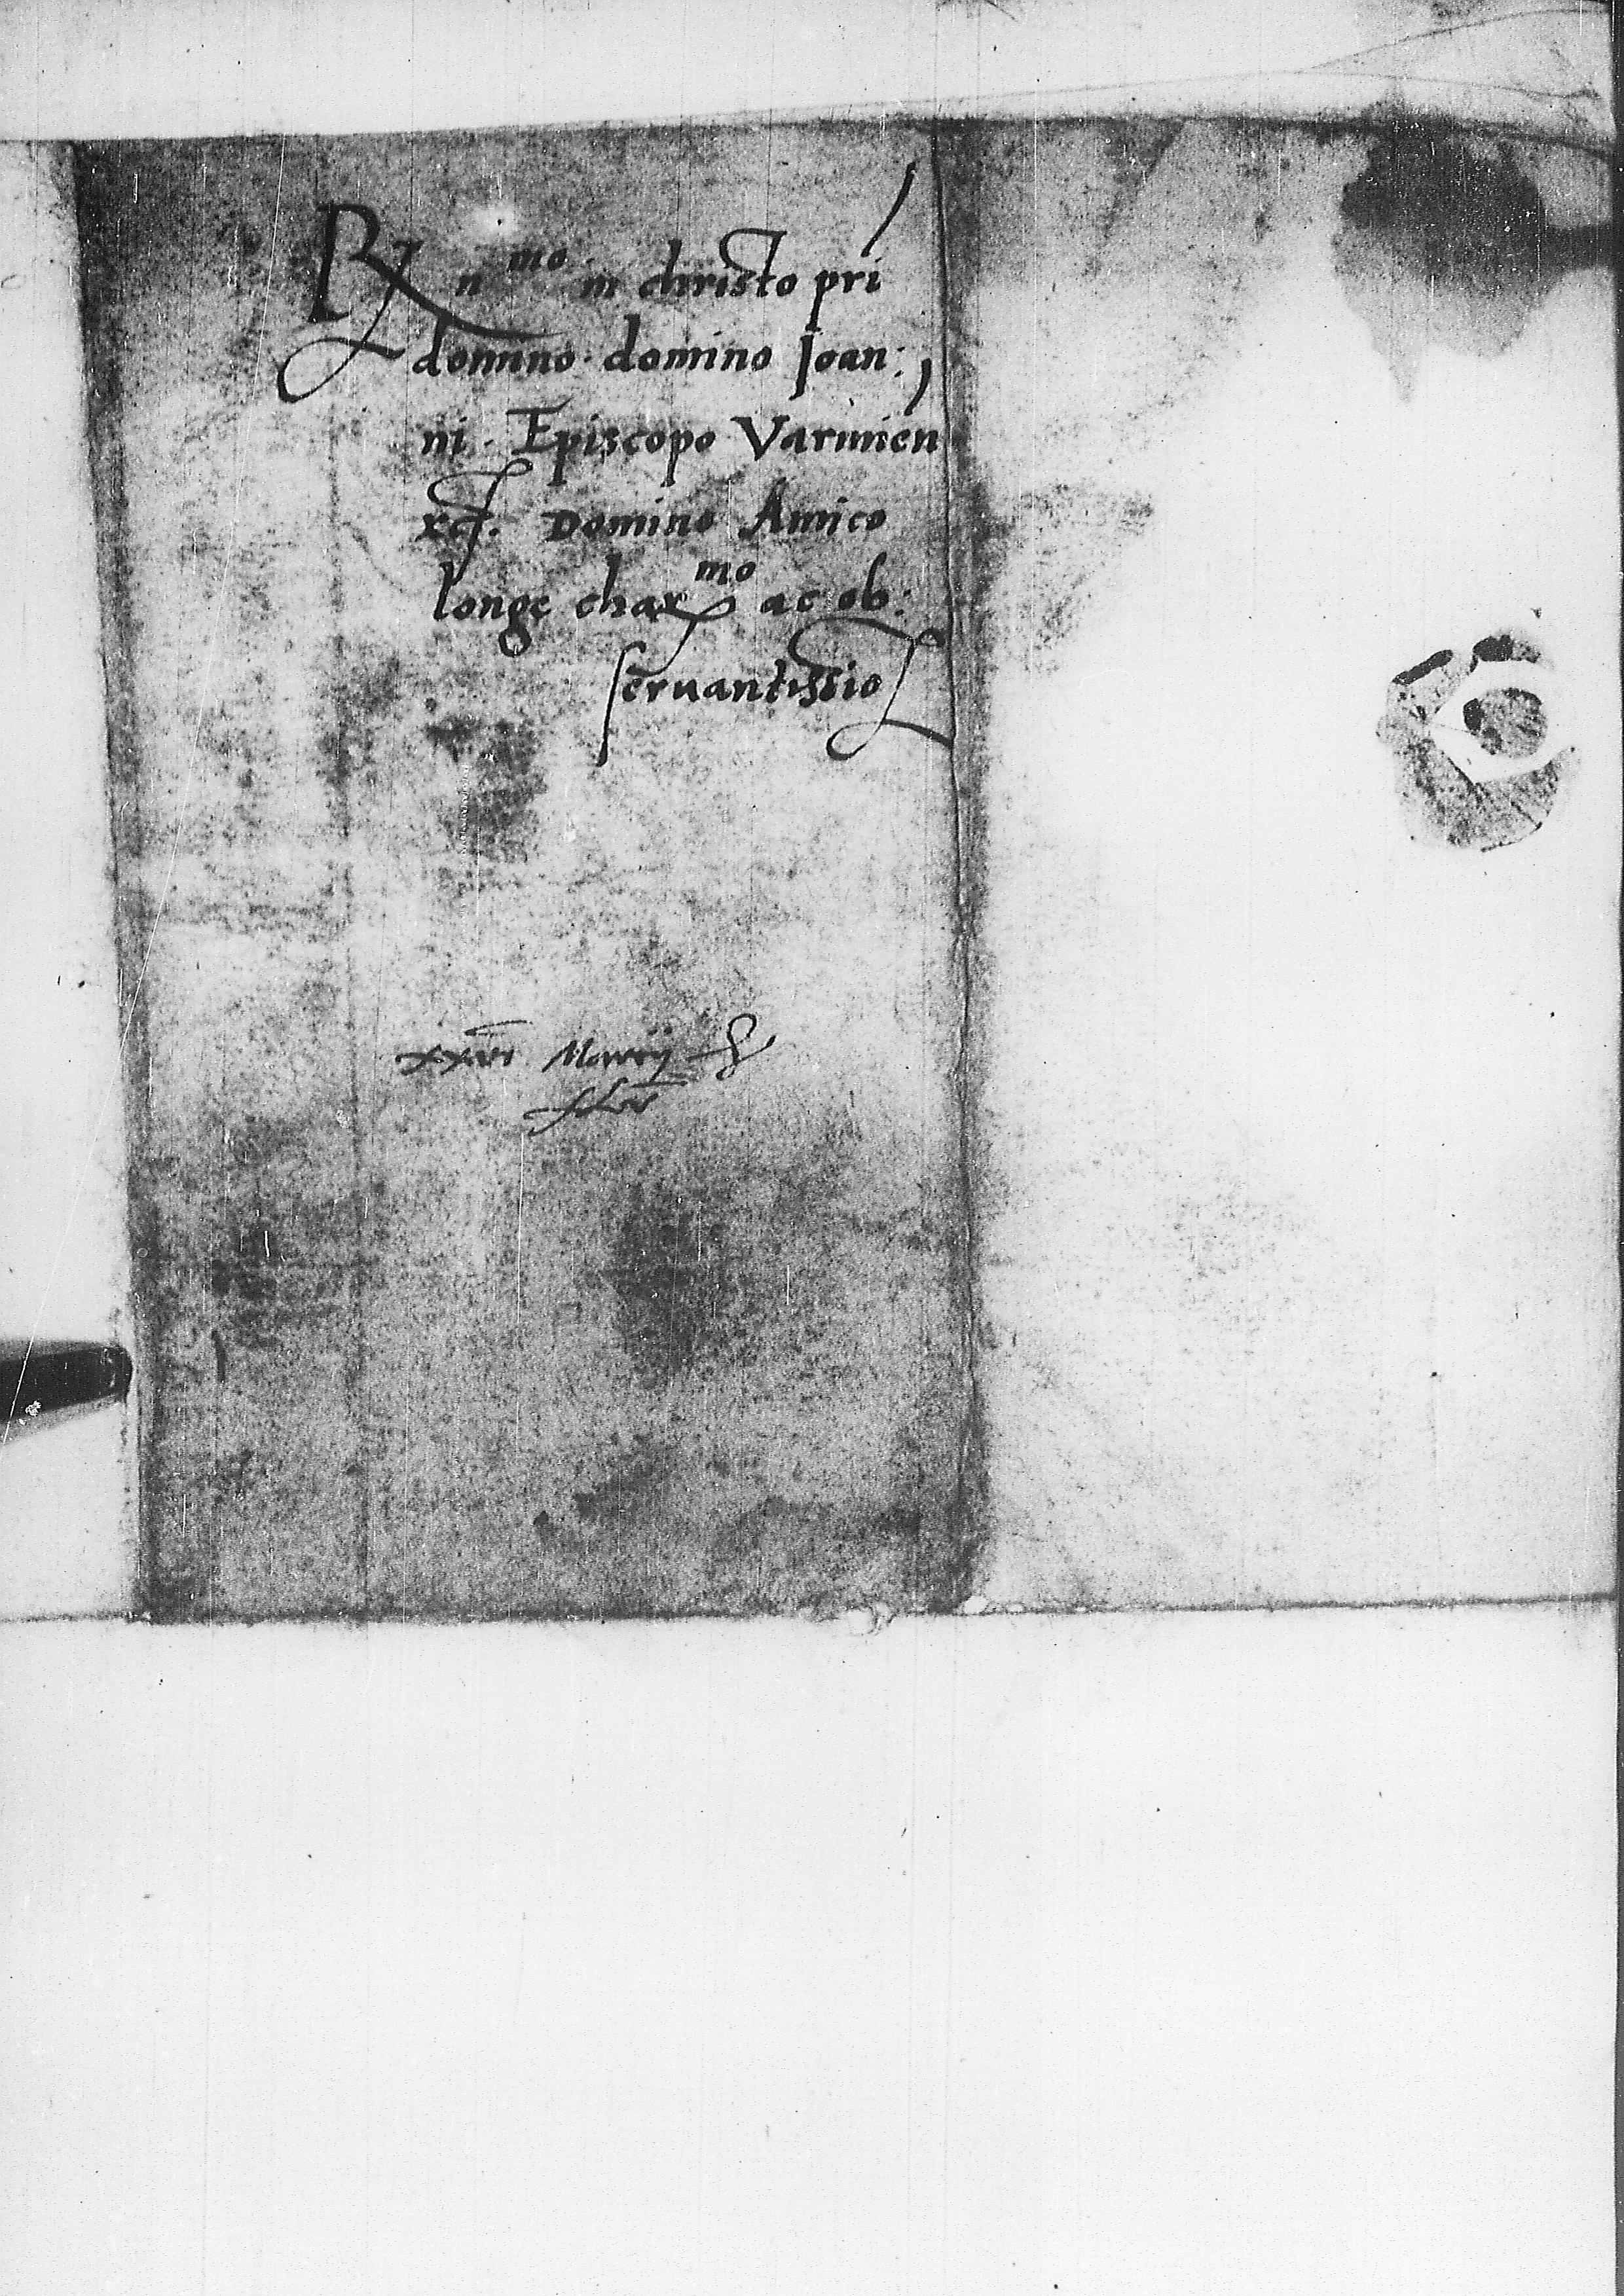 Rn^mo in christo pri
domino domino Joan:
ni. Episcopo Varmien
xc. Domino Amico
longe char^mo ac ob:
seruantissio
xxvi Marcij